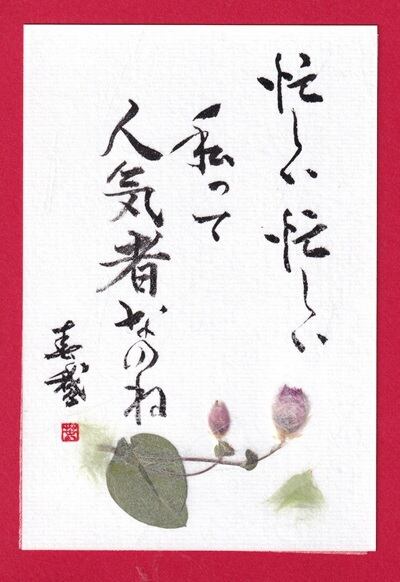 忙しい忙しい
私って
人気者なのね